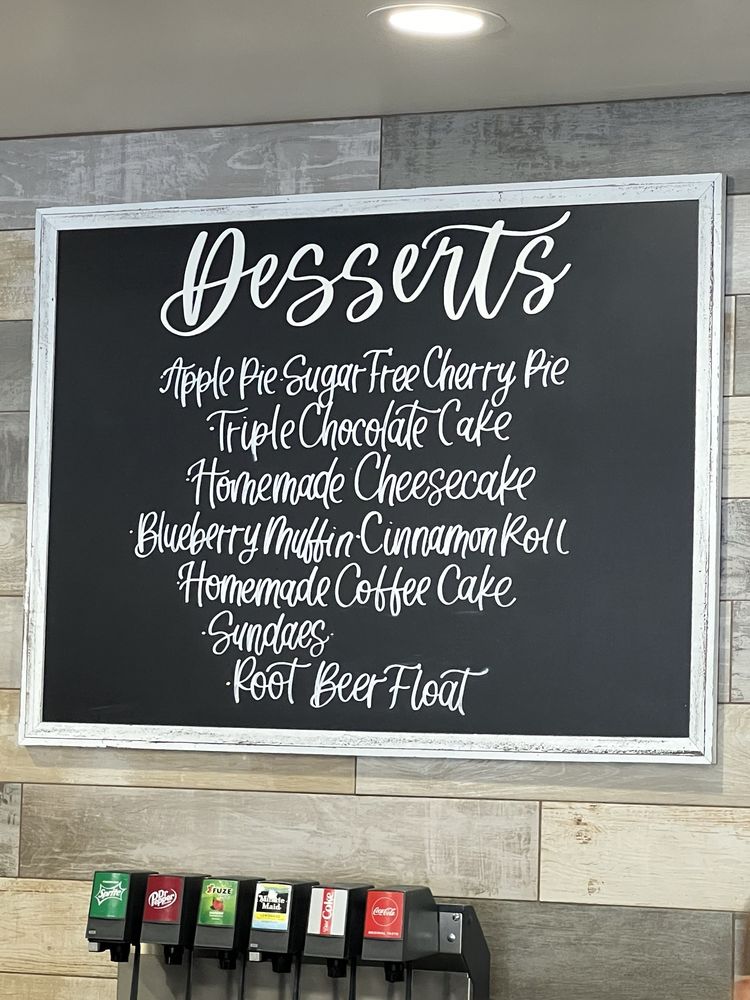 Desserts
·Apple Pie·Sugar Free Cherry Pie
·Triple Chocolate Cake
·Homemade Cheesecake
·Blueberry Muffin·Cinnamon Roll
·Homemade Coffee Cake
·Sundaes·
·Root Beer Float
Sprite
Dr Pepper
FUZE
Minute Maid
Diet Coke
Coca-Cola
ORIGINAL TASTE